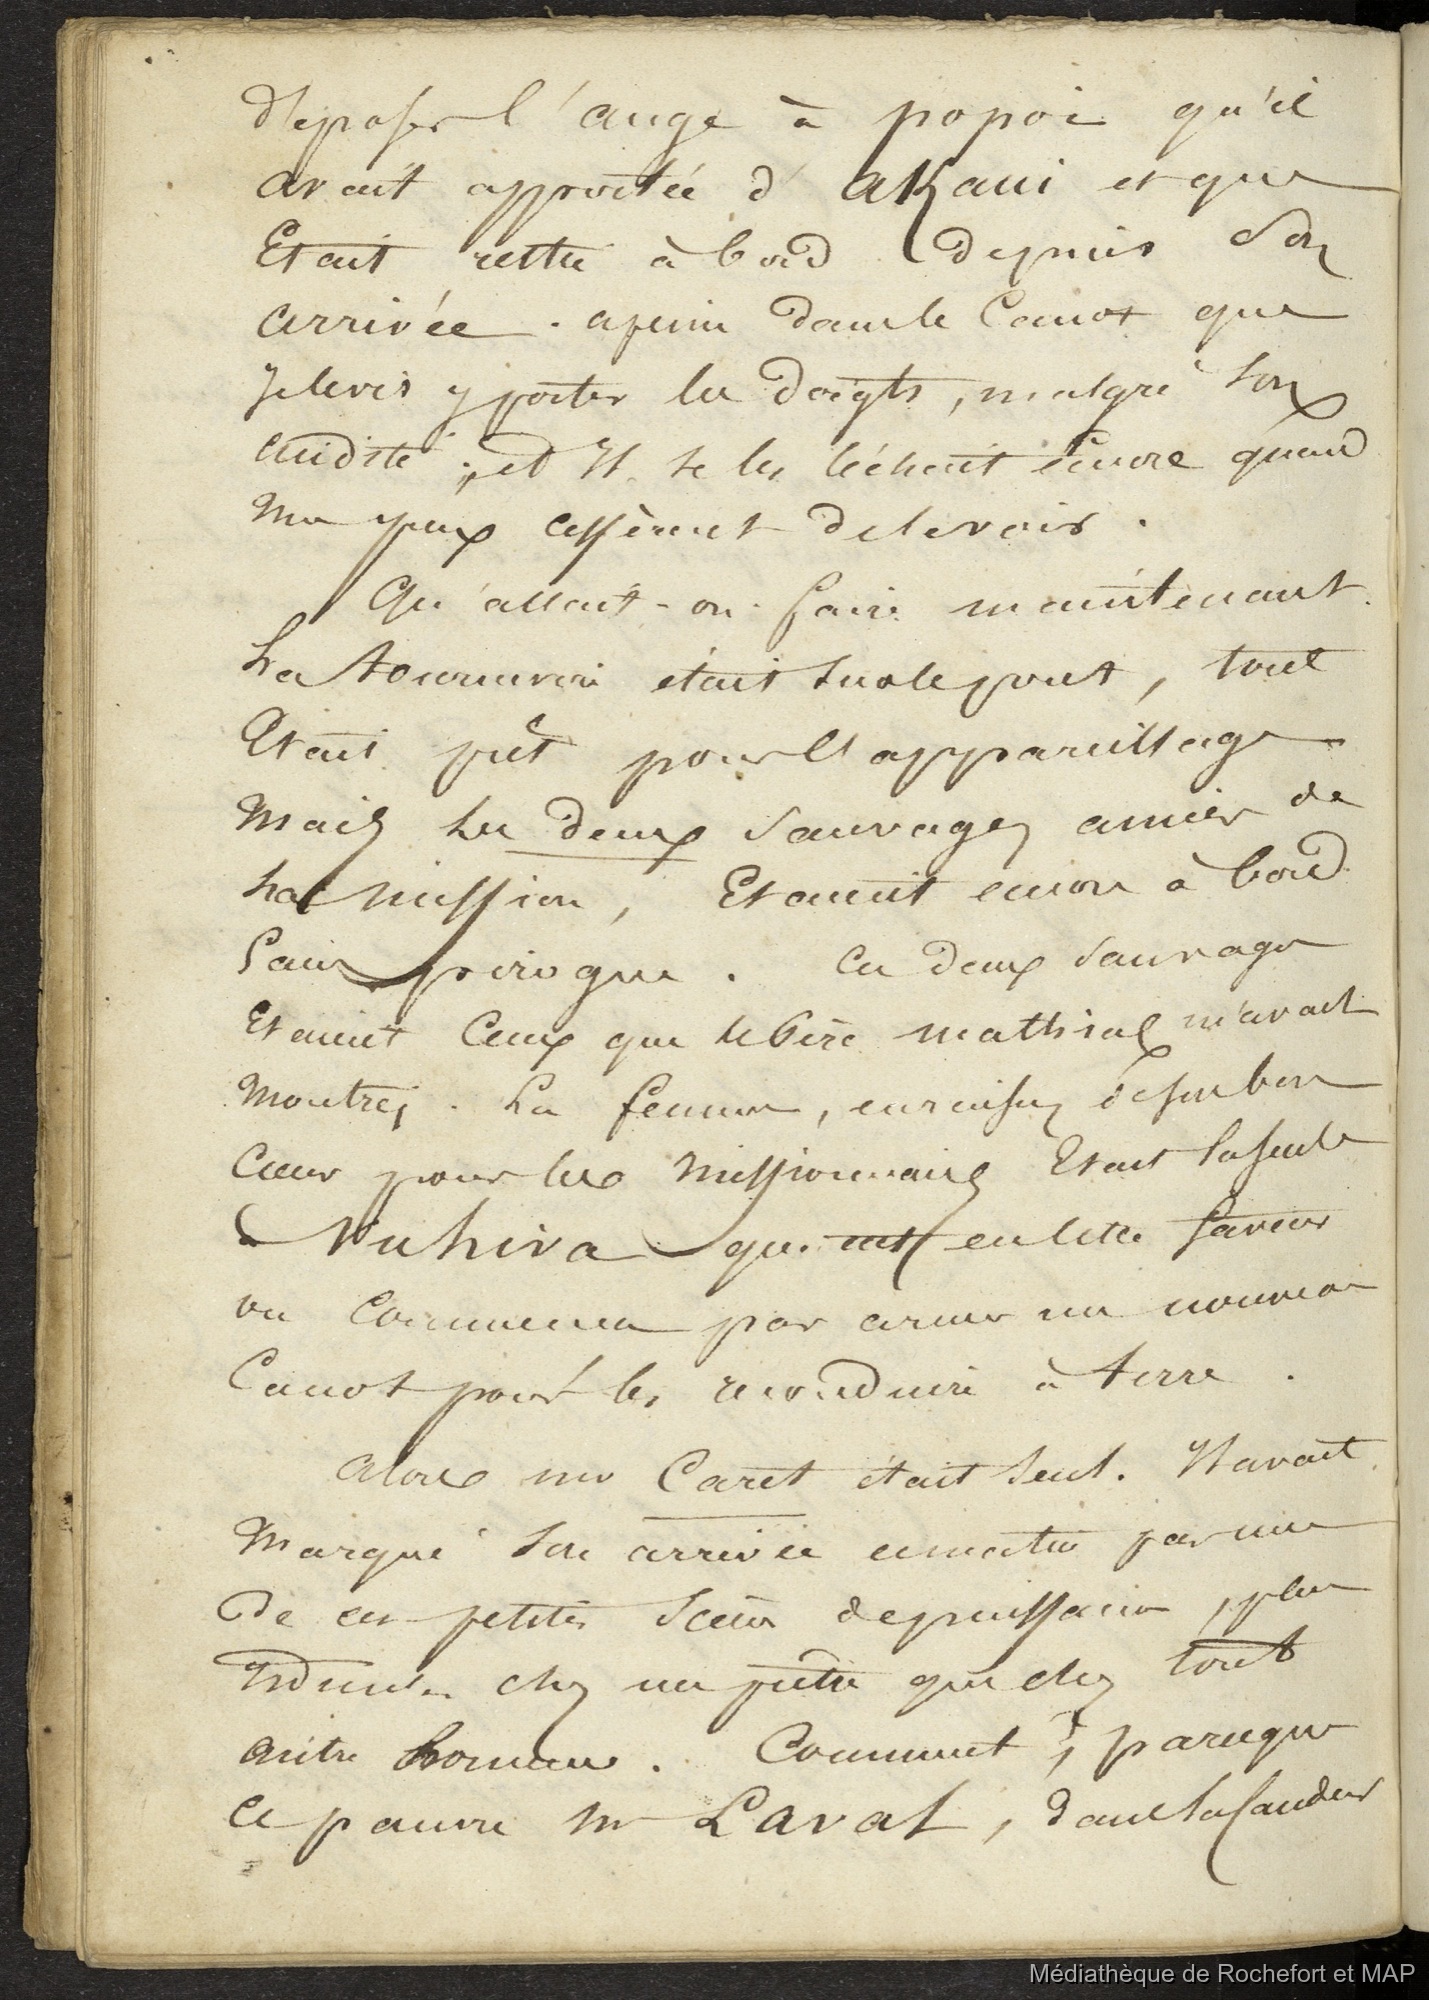 déposer l'auge à popoi qu'il
avait apportée d'akaui et qui
Etait restée à bord depuis Son
arrivée. a peine dans le Canot que
Je le vis y porter les doigts, malgré son
acidité; et Il se les léchait encore quand
mes yeux cessèrent de le voir.
Qu'allait-on faire maintenant.
La tournevire était sur le pont, tout
Etait prêt pour l'appareillage
Mais les deux Sauvages amis de
La mission, Etaient encore à bord
Sans pirogue. Ces deux Sauvages
Etaient Ceux que le Père mathias m'avait
Montrés. La femme, en raison de son bon
Coeur pour les Missionnaires Etait la seule
Nuhiva qui eut cette faveur
on Commença par armer un nouveau
Canot pour les reconduire à terre.
Alors mr Caret était seul. Il avait
Marqué son arrivée ce matin par une
de ces petites Scènes de puissance, plus
ridicules chez un prêtre que chez tout
autre homme. Comment, parceque
Ce pauvre mr Laval, dans sa candeur
Médiathèque de Rochefort et MAP